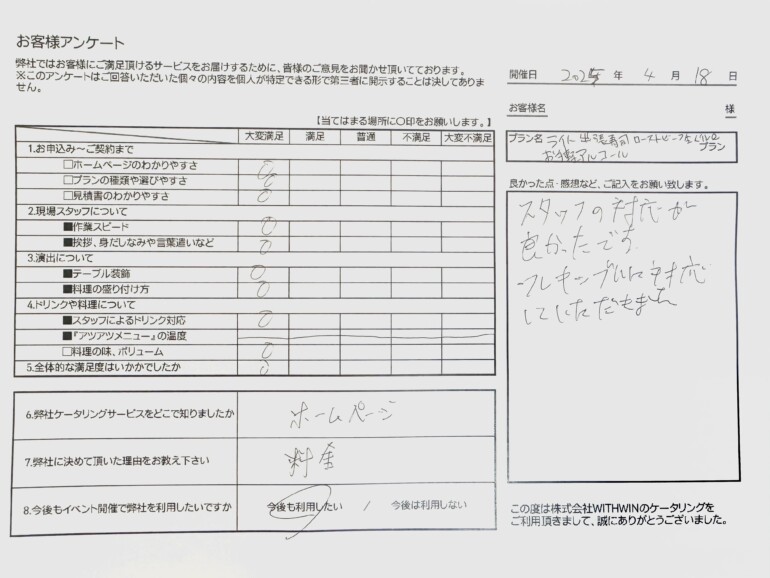 お客様アンケート
弊社ではお客様にご満足頂けるサービスをお届けするために、皆様のご意見をお聞かせ頂いております。
※このアンケートはご回答いただいた個々の内容を個人が特定できる形で第三者に開示することは決してありません。
【当てはまる場所に○印をお願いします。】
大変満足 満足 普通 不満足 大変不満足
1.お申込み～ご契約まで
□ホームページのわかりやすさ ○
□プランの種類や選びやすさ ○
□見積書のわかりやすさ ○
2.現場スタッフについて
■作業スピード ○
■挨拶、身だしなみや言葉遣いなど ○
3.演出について
■テーブル装飾 ○
■料理の盛り付け方 ○
4.ドリンクや料理について
■スタッフによるドリンク対応 ○
■『アツアツメニュー』の温度
□料理の味、ボリューム ○
5.全体的な満足度はいかがでしたか ○
6.弊社ケータリングサービスをどこで知りましたか ホームページ
7.弊社に決めて頂いた理由をお教え下さい 料金
8.今後もイベント開催で弊社を利用したいですか 今後も利用したい / 今後は利用しない
開催日 2025 年 4 月 18 日
お客様名 様
プラン名 ライト 出張寿司 ローストビーフ
お手軽アルコール プラン
良かった点・感想など、ご記入をお願い致します。
スタッフの対応が
良かったです
フレキシブルに対応
していただきました
この度は株式会社WITHWINのケータリングを
ご利用頂きまして、誠にありがとうございました。